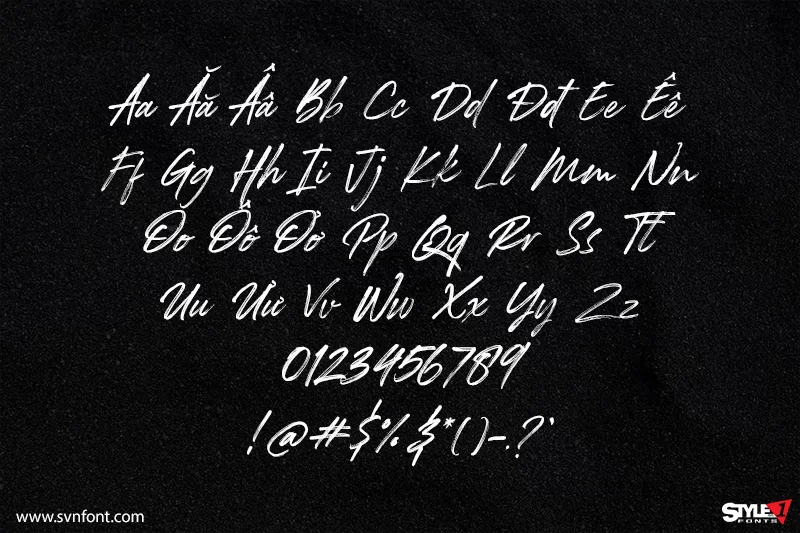 Aa Ăă Ââ Bb Cc Dd Đđ Ee Êê
Ff Gg Hh Ii Jj Kk Ll Mm Nn
Oo Ôô Ơơ Pp Qq Rr Ss Tt
Uu Ưư Vv Ww Xx Yy Zz
0123456789
!@#$%&*()-.?'
www.svnfont.com
STYLE 1
FONTS